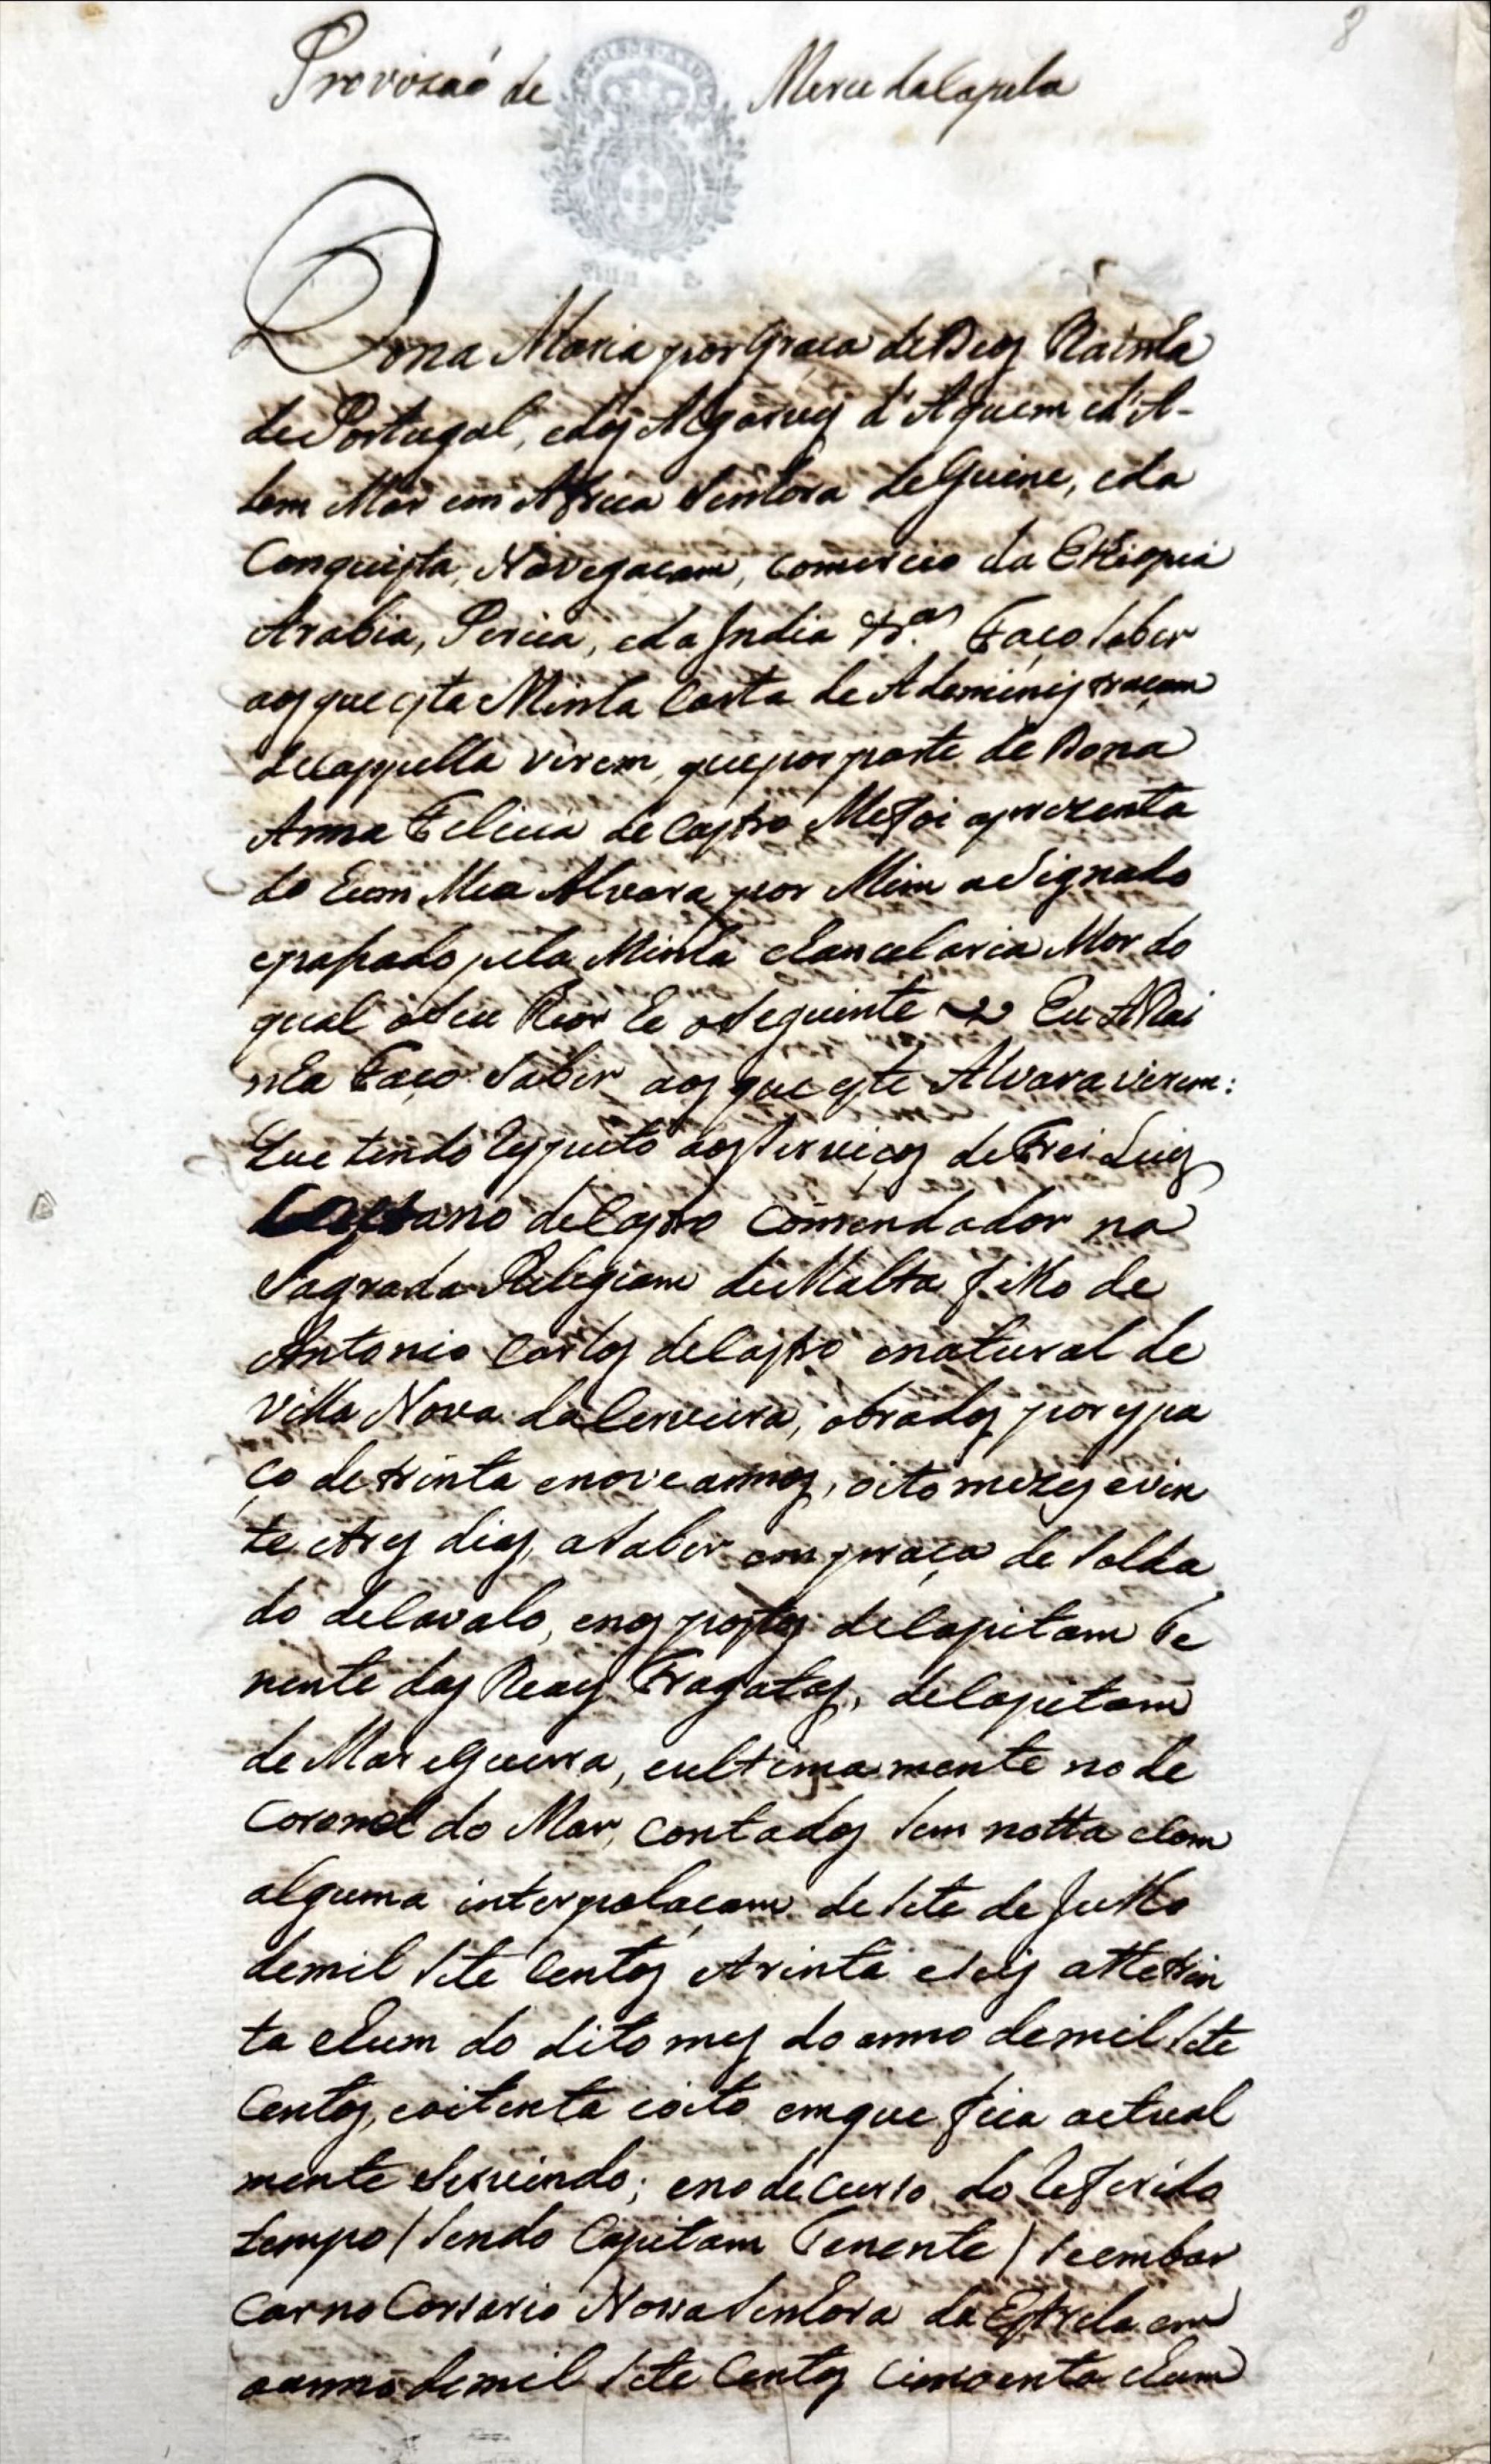 8
Provizaõ de Merce da Capela
Dona Maria por Graça de Deos Rainha
de Portugal, e dos Algarves d'Aquem e d'A-
lem Mar em Africa Senhora de Guine, e da
Conquista, Navegaçam, comercio da Ethiopia
Arabia, Percia, e da India &.ª Faço saber
aos que esta Minha Carta deAdeminis traçam
de Cappella virem, que por parte de Dona
Anna Felicia de Castro Me foi aprezenta
do hum Meu Alvara por Mim asignado
e passado pela Minha chancelaria Mor do
qual o seu theor he o seguinte Eu A Rai
nha Faço saber aos que este Alvara virem:
Que tendo respeito aos serviços de Frei Luis
Caetano de Castro Comendador na
Sagrada Religiam de Malta filho de
Antonio Carlos de Castro enatural de
Villa Nova da Cerveira, obrados por espa
ço de trinta e nove annos, oito mezes e vin
te e tres dias, a saber em praça de solda
do de Cavalo, e nos postos de Capitam Te
nente das Reaes Fragatas, de Capitam
de Mar e Guerra, e ultima mente no de
Coronel do Mar, contados sem notta e com
alguma interpolaçam de sete de Julho
de mil sete centos e trinta e seis athe trin
ta e hum do dito mes do anno de mil sete
centos, e oitenta e oito em que fica actual
mente servindo; e no decurso do referido
tempo / sendo Capitam Tenente / se embar
car no Corsario Nossa Senhora da Estrela em
o anno de mil sete centos cincoenta e hum